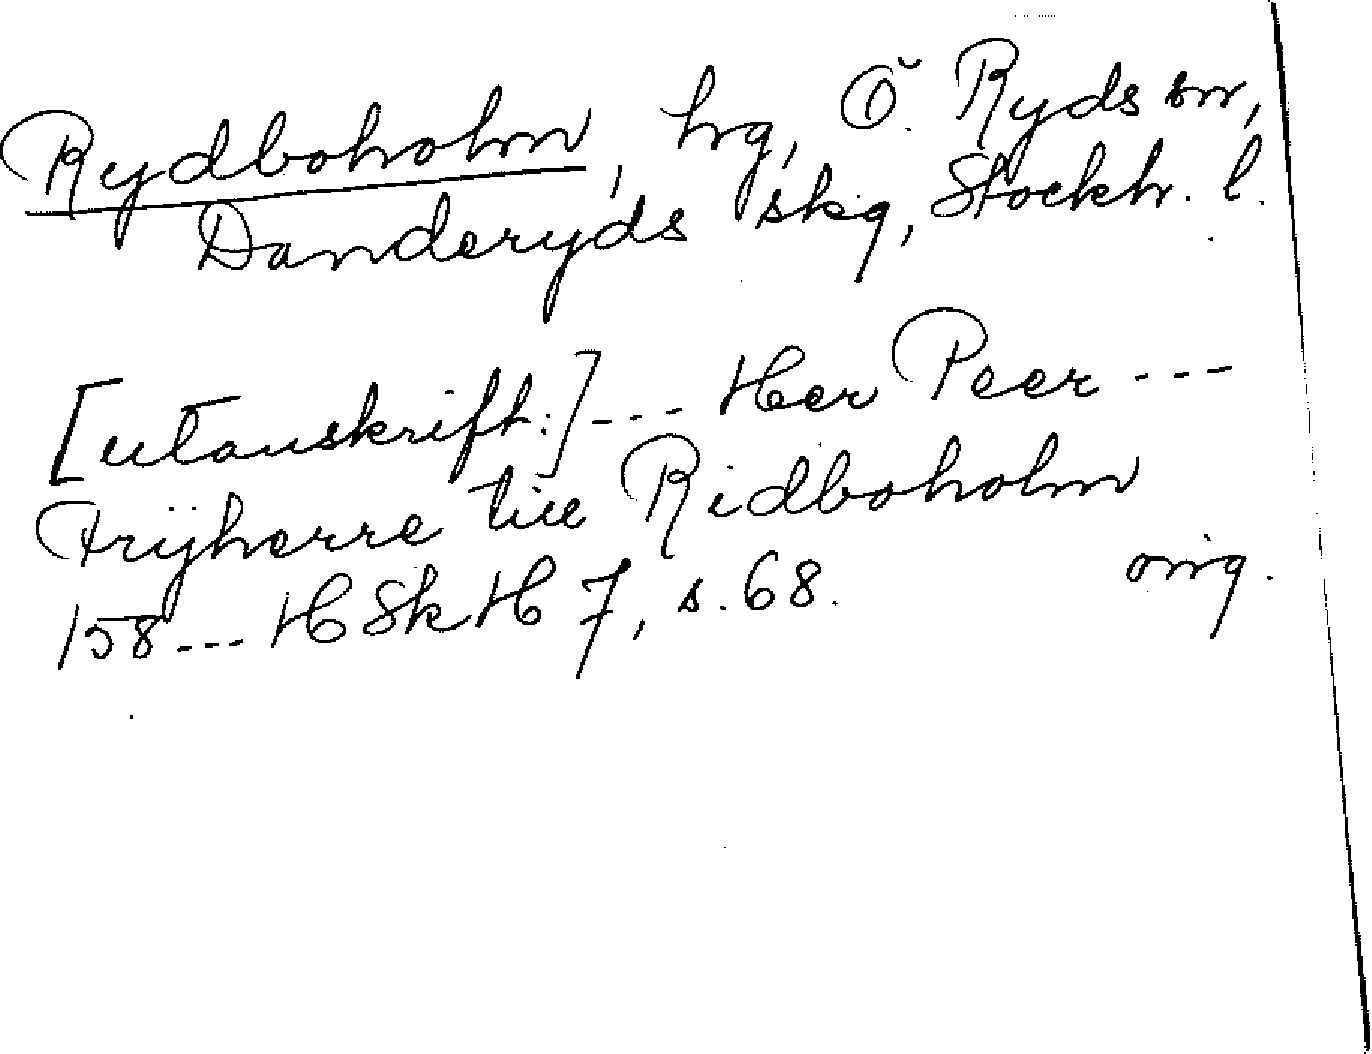 Rydboholm, hg, Ö. Ryds sn,
Danderyds skg, Stockh. l.
[utanskrift:] --- Her Peer ---
Frijherre till Ridboholm
158--- HSkH 7, s. 68. orig.